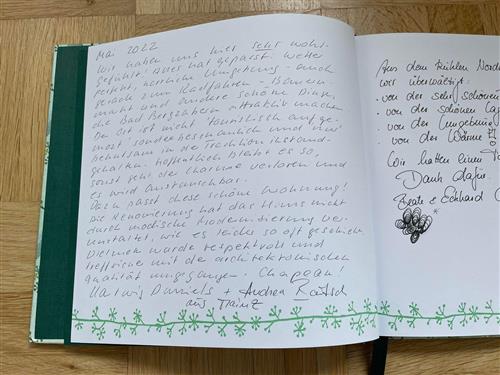 Mai 2022
Wir haben uns hier sehr wohl-
gefühlt! Alles hat gepasst: Wetter
perfekt, herrliche Umgebung - auch
gerade zum Radfahren -
und andere schöne Dinge,
die Bad Bergzabern attraktiv machen.
Der Ort ist nicht touristisch aufge-
motzt sondern beschaulich und nur
behutsam in die
gehalten. Hoffentlich bleibt es so,
sonst geht der Charme verloren und
es wird austauschbar.
Dazu passt diese schöne Wohnung!
Die Renovierung hat das Haus nicht
durch modische Modernisierung ver-
unstaltet, wie es leider so oft geschieht.
Vielmehr wurde respektvoll und
treffsicher mit der architektonischen
Qualität umgegangen. Chapeau!
Hartwig Daniels + Andrea
aus Mainz
Aus dem kühlen Norde
wir überwältigt:
· von der sehr schönen
· von der schönen
· von der Umgebung
· von der Wärme
Wir hatten einen
Dank dafür.
Beate & Eckhard